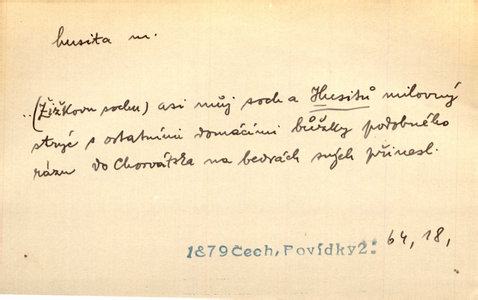 husita m.
..(Žižkovu sochu) asi můj soch a Husitů milovný
strýc s ostatními domácími bůžky podobného
rázu do Chorvátska na bedrách svých přinesl.
1879 Čech, Povídky 2: 64, 18,